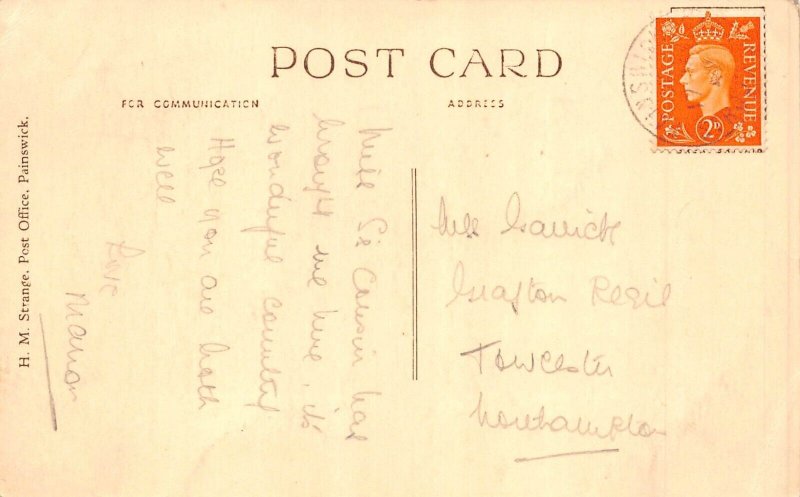 POST CARD
FOR COMMUNICATION
ADDRESS
POSTAGE
REVENUE
2D
H. M. Strange, Post Office, Painswick.
Cousin has
brought me here, it's
wonderful country
Hope you are both
well
Love
Marion
Garrick
Grafton Regis
Towcester
Northampton